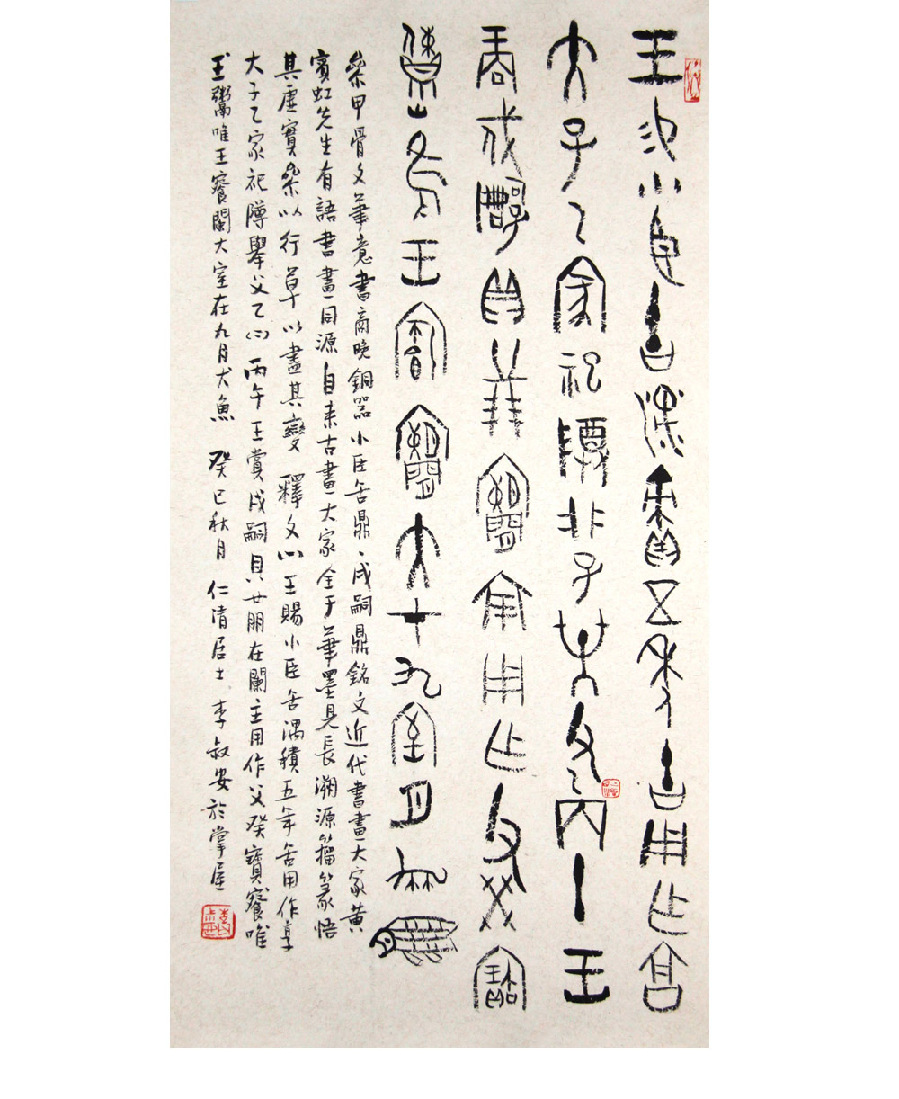 王易小臣缶渪責五年缶用乍享
大子乙家祀尊父乙丙午王
商戍嗣貝廿朋才用乍父癸寶
隹王大室才九月犬魚
參甲骨文筆意書商晚銅器小臣缶鼎、戍嗣鼎銘文近代書畫大家黃
賓虹先生有語書畫同源自來古畫大家全于筆墨見長溯源籀篆悟
其虛實參以行草以盡其變 釋文 王賜小臣缶渪積五年缶用作享
大子乙家祀障舉父乙 丙午王賞戍嗣貝廿朋在闌主用作父癸寶餐唯
王鬻唯王餐闌大室在九月犬魚 癸巳秋月 仁清居士 李叔安於掌